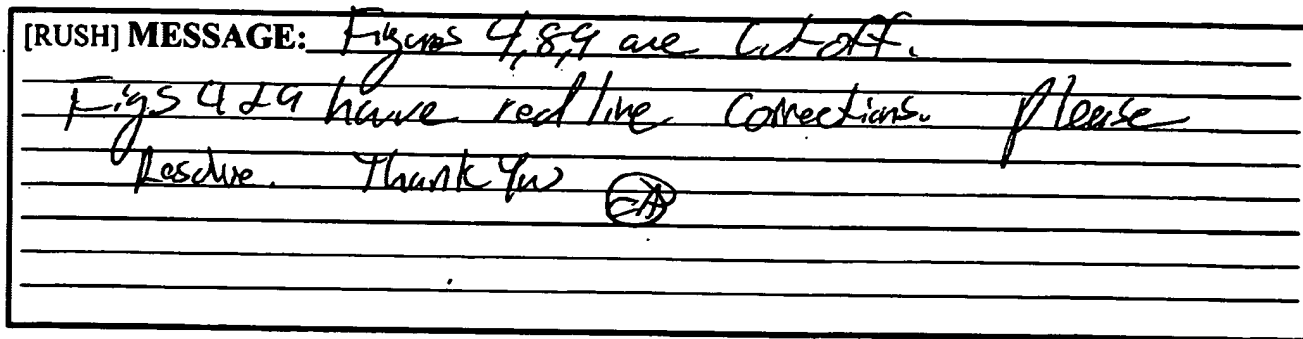 [RUSH] MESSAGE: Figures 4,8,9 are cut off.
Figs 4 & 9 have red line corrections. Please
Resolve. Thank You